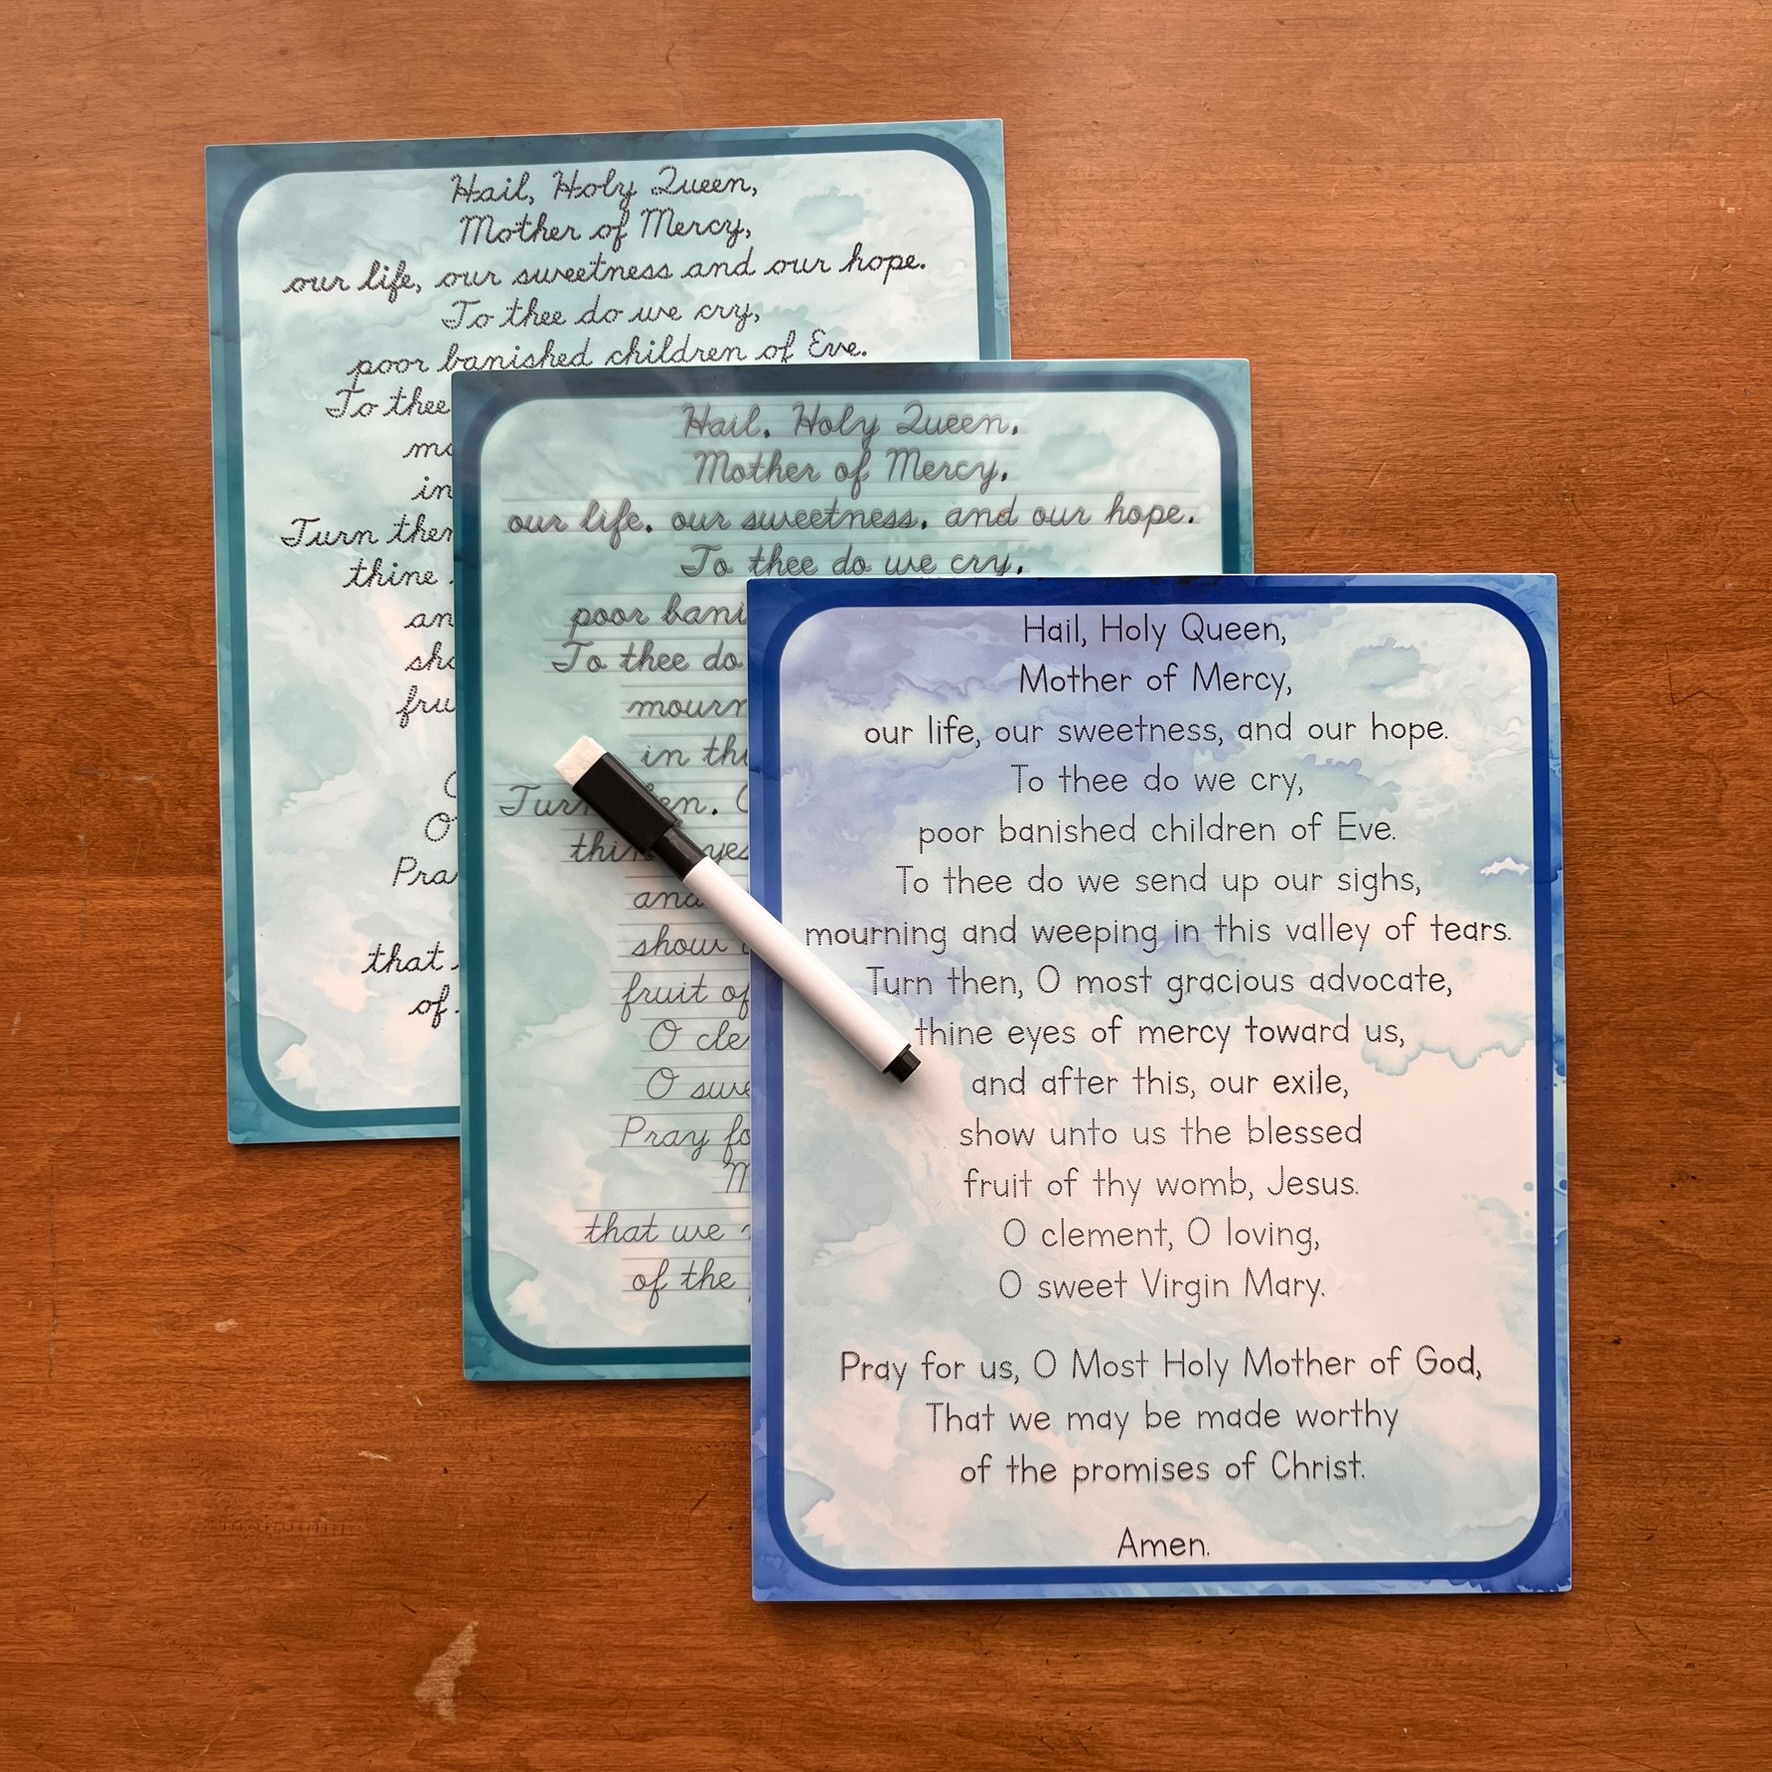 Hail, Holy Queen,
Mother of Mercy,
our life, our sweetness and our hope.
To thee do we cry,
poor banished children of Eve.
To thee
in
Turn then
thine
that
of
Hail, Holy Queen,
Mother of Mercy,
our life, our sweetness, and our hope.
To thee do we cry,
poor
To thee do
in
and
show
fruit of
O
O
Pray
that we
of the
Hail, Holy Queen,
Mother of Mercy,
our life, our sweetness, and our hope.
To thee do we cry,
poor banished children of Eve.
To thee do we send up our sighs,
mourning and weeping in this valley of tears.
Turn then, O most gracious advocate,
thine eyes of mercy toward us,
and after this, our exile,
show unto us the blessed
fruit of thy womb, Jesus.
O clement, O loving,
O sweet Virgin Mary.
Pray for us, O Most Holy Mother of God,
That we may be made worthy
of the promises of Christ.
Amen.